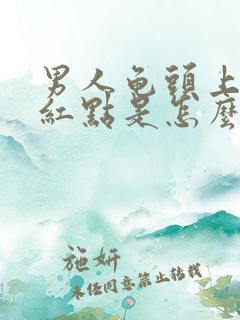 男人龟頭上
紅點是怎麼
施妍
未經同意禁止轉載